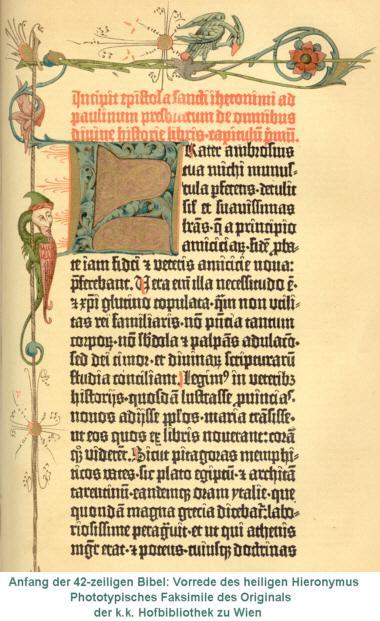 Incipit epistola sancti iheronimi ad
paulinum presbiterum de omnibus
divine historie libris·capitulū pmū.
Frater ambrosius
tua michi munus-
cula pferens·detulit
sil et suauissimas
lras·q̄ a principio
amiciciaꝝ·fidē pba-
te iam fidei ⁊ veteris amicicie noua:
pferebant. Vera eni illa necessitudo ē·
⁊ xpi glutino copulata·qm non vtili-
tas rei familiaris·nō pncia tantum
corpoꝝ·nō sbdola ⁊ palpās adulacō·
sed dei timor·et diuinaꝝ scripturaꝝ
studia conciliant. Legimꝰ in veteribꝫ
historijs·quosdā lustrasse puincias·
nouos adijsse pplos·maria trāsisse·
vt eos quos ex libris nouerant: corā
qꝫ viderēt. Sicut pitagoras memphi-
ticos vates·sic plato egiptū·⁊ architā
tarentinū·eandemqꝫ oram ytalie·que
quondā magna grecia dicebat᷑: labo-
riosissime peragᷓuit·et vt qui athenis
mgr̄ erat·⁊ potens·cuiusqꝫ doctrinas
Anfang der 42-zeiligen Bibel: Vorrede des heiligen Hieronymus
Phototypisches Faksimile des Originals
der k.k. Hofbibliothek zu Wien